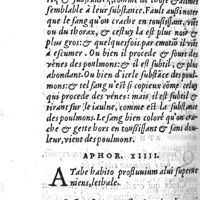 semblable à leur substance. Fault aussi noter
que le sang qu'on crache en toussissant, vient
ou du thorax, & cestuy la est plus noir
plus gros: & quelquefois par emotiõ il viẽt
à escumer. Ou bien il procede & sort des
venes des poulmons: & il est subtil, & plus
abondant. Ou bien d'icelle substãce des poul-
mons: & tel sang n'est si copieux cõme celuy
qui procede des venes: mais il est subtil, & tirant
sur le iaulne, comme est la substance
des poulmons. Le sang bien coloré qu'on cra-
che & gette hors en toussissant & sans dou-
leur, vient des poulmons.
APHOR. XIIII.
A Tabe habito profluuium alui superue-
niens, lethale.